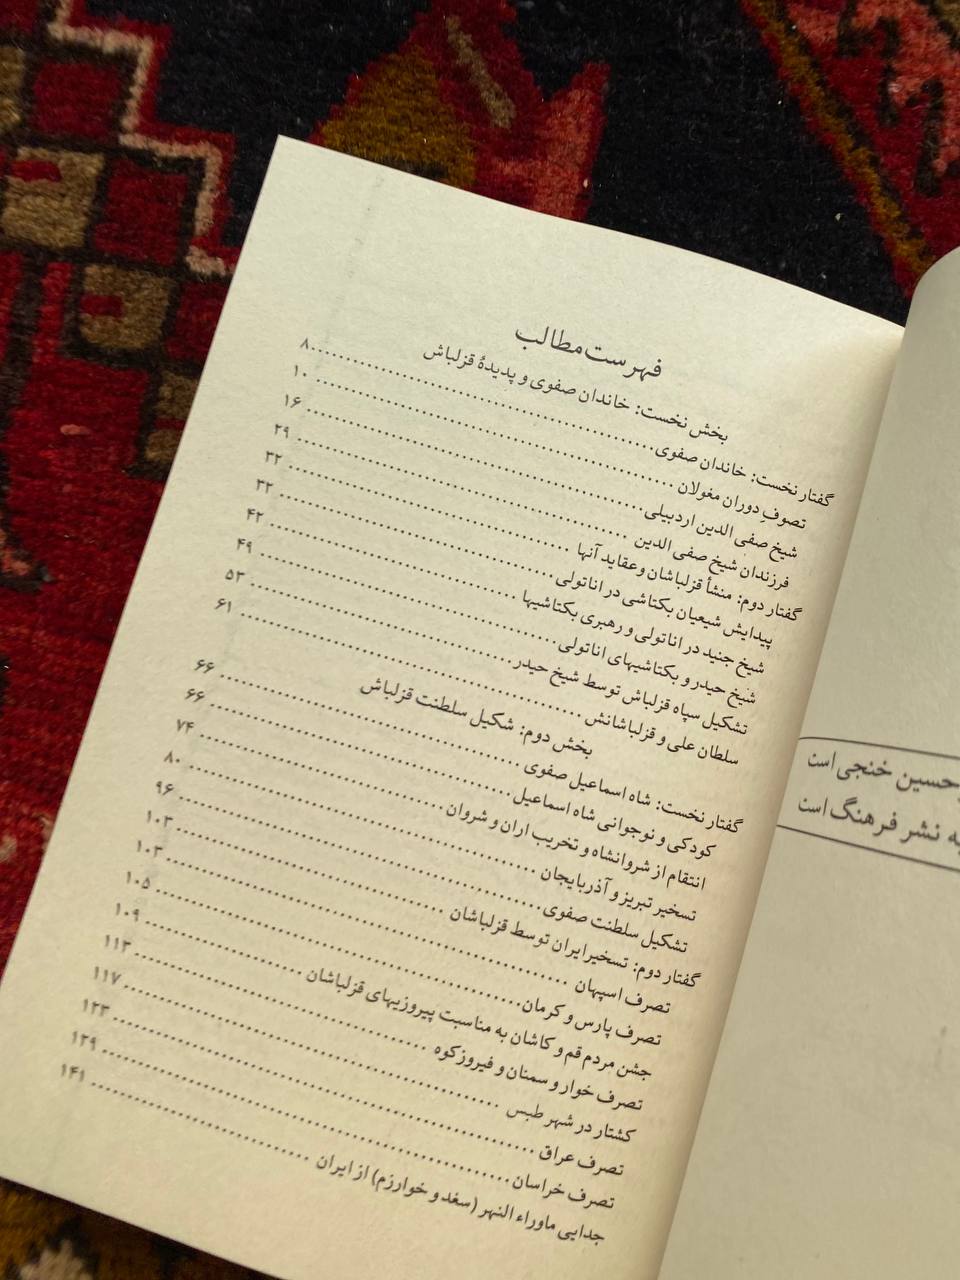 فهرست مطالب
بخش نخست: خاندان صفوی و پدیدهٔ قزلباش
گفتار نخست: خاندان صفوی ........ ۸
تصوفِ دوران مغولان ........ ۱۰
شیخ صفی الدین اردبیلی ........ ۱۶
فرزندان شیخ صفی الدین ........ ۲۹
گفتار دوم: منشأ قزلباشان وعقاید آنها ........ ۳۲
پیدایش شیعیان بکتاشی در اناتولی ........ ۳۲
شیخ جنید در اناتولی و رهبری بکتاشیها ........ ۴۲
شیخ حیدر و بکتاشیهای اناتولی ........ ۴۹
تشکیل سپاه قزلباش توسط شیخ حیدر ........ ۵۳
سلطان علی و قزلباشانش ........ ۶۱
بخش دوم: شکیل سلطنت قزلباش
گفتار نخست: شاه اسماعیل صفوی ........ ۶۶
کودکی و نوجوانی شاه اسماعیل ........ ۶۶
انتقام از شروانشاه و تخریب اران و شروان ........ ۷۴
تسخیر تبریز و آذربایجان ........ ۸۰
تشکیل سلطنت صفوی ........ ۹۶
گفتار دوم: تسخیرایران توسط قزلباشان ........ ۱۰۳
تصرف اسپهان ........ ۱۰۳
تصرف پارس و کرمان ........ ۱۰۵
جشن مردم قم و کاشان به مناسبت پیروزیهای قزلباشان ........ ۱۰۹
تصرف خوار و سمنان و فیروزکوه ........ ۱۱۳
کشتار در شهر طبس ........ ۱۱۷
تصرف عراق ........ ۱۲۳
تصرف خراسان ........ ۱۲۹
جدایی ماوراء النهر (سغد و خوارزم) از ایران ........ ۱۴۱
حسین خنجی است
به نشر فرهنگ است